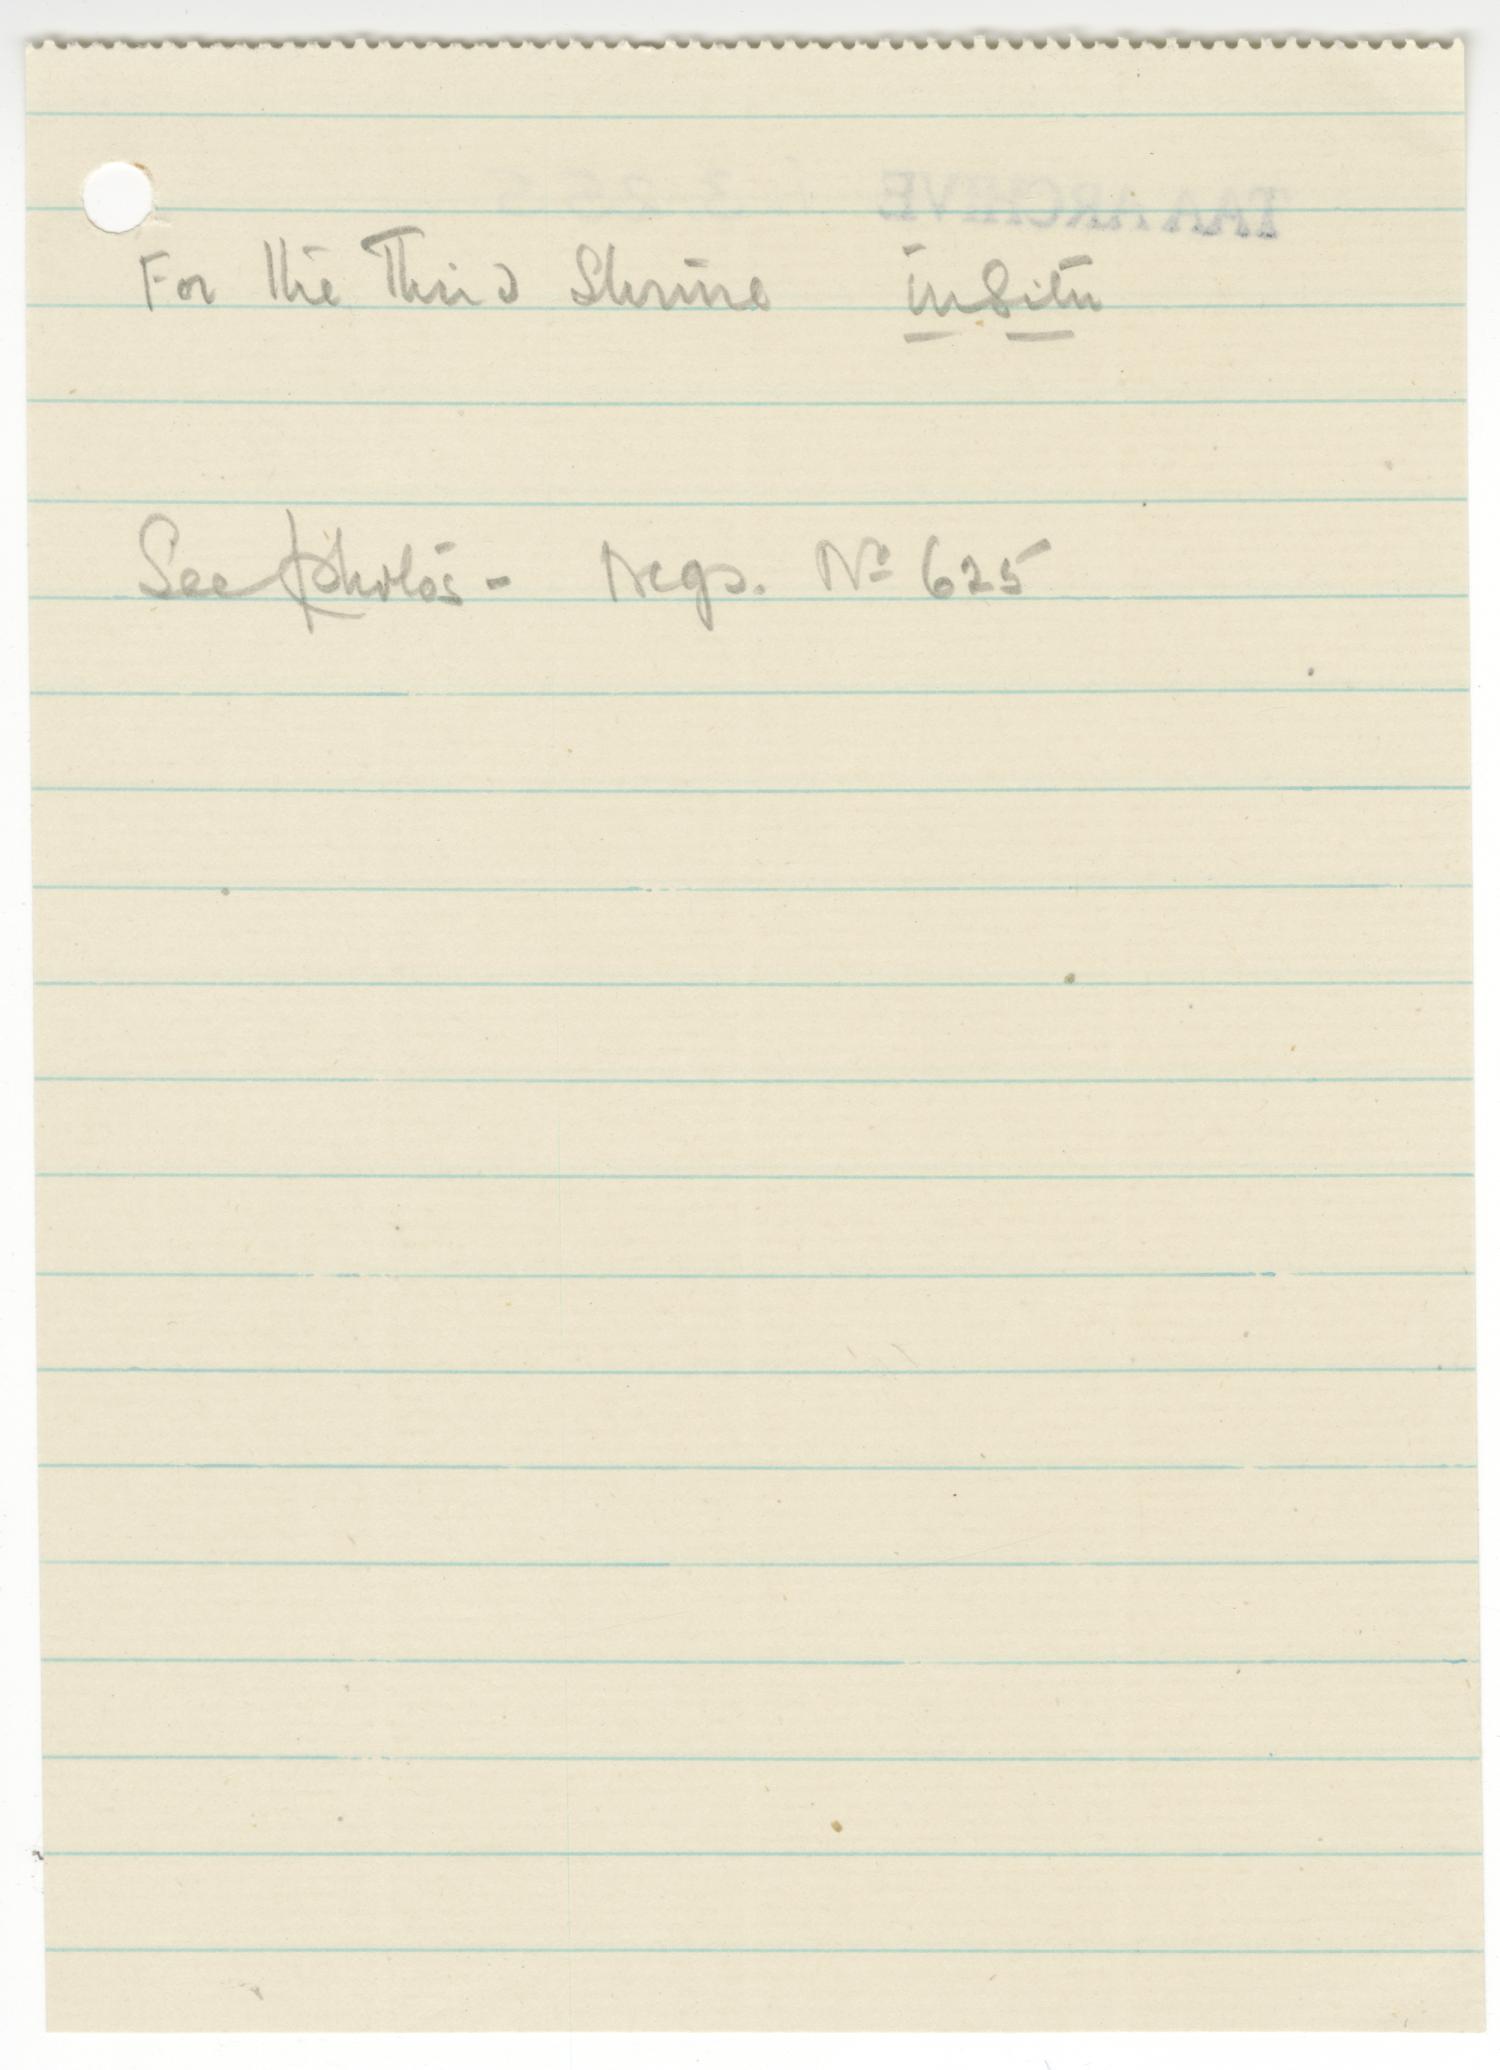 For the Third Shrine in Situ
See photos - Negs. Nº 625